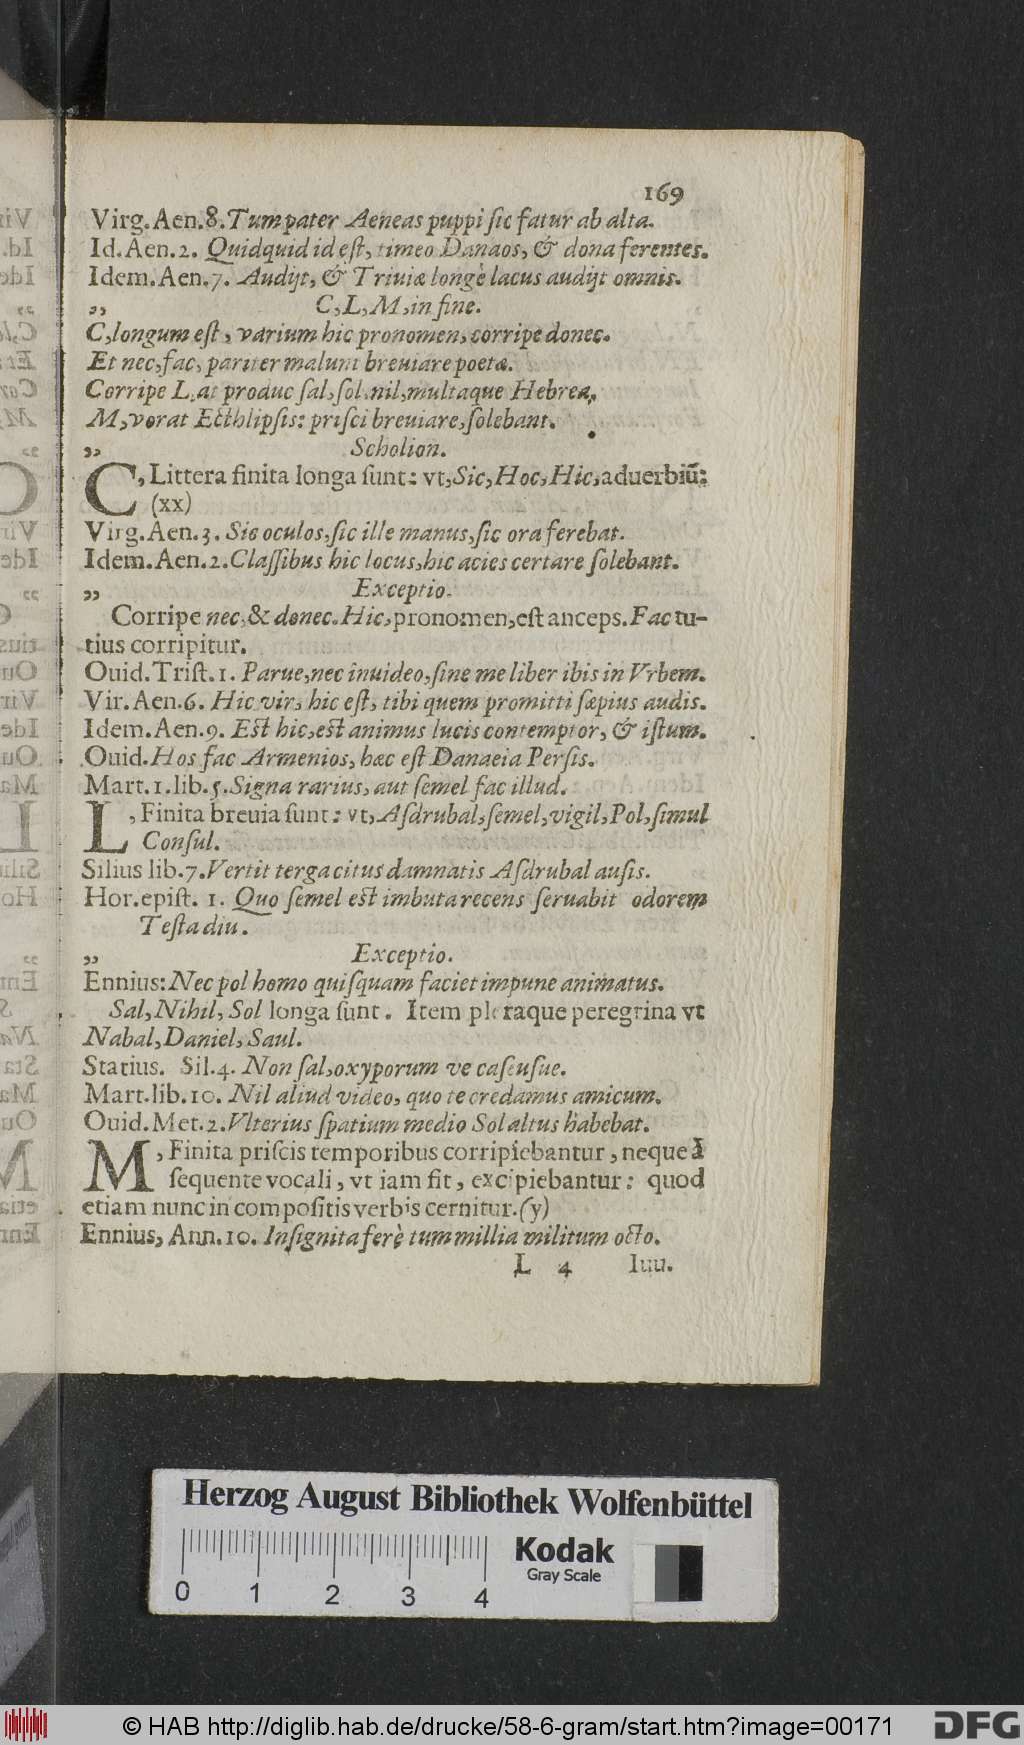 169
Virg.Aen.8.Tum pater Aeneas puppi ſic fatur ab alta.
Id.Aen.2. Quidquid id eſt, timeo Danaos, & dona ferentes.
Idem.Aen.7. Audijt, & Triuiæ longè lacus audijt omnis.
„ C, L, M, in fine.
C,longum eſt, varium hic pronomen, corripe donec.
Et nec, fac, pariter malunt breuiare poetæ.
Corripe L, at produc ſal, ſol, nil, multaque Hebrea,
M, vorat Ecthlipſis: priſci breuiare, ſolebant.
„ Scholion.
C, Littera finita longa ſunt: vt, Sic, Hoc, Hic, aduerbiũ:
(xx)
Virg.Aen.3. Sic oculos, ſic ille manus, ſic ora ferebat.
Idem.Aen.2. Claſſibus hic locus, hic acies certare ſolebant.
„ Exceptio.
Corripe nec, & donec. Hic, pronomen, eſt anceps. Fac tu-
tius corripitur.
Ouid.Triſt.1. Parue, nec inuideo, ſine me liber ibis in Vrbem.
Vir.Aen.6. Hic vir, hic eſt, tibi quem promitti ſæpius audis.
Idem.Aen.9. Est hic, est animus lucis contemptor, & iſtum.
Ouid. Hos fac Armenios, hæc eſt Danaeia Perſis.
Mart.1.lib.5. Signa rarius, aut ſemel fac illud.
L, Finita breuia ſunt: vt, Aſdrubal, ſemel, vigil, Pol, ſimul
Conſul.
Silius lib.7. Vertit terga citus damnatis Aſdrubal auſis.
Hor.epiſt. 1. Quo ſemel est imbuta recens ſeruabit odorem
Teſta diu.
„ Exceptio.
Ennius: Nec pol homo quiſquam faciet impune animatus.
Sal, Nihil, Sol longa ſunt. Item pleraque peregrina vt
Nabal, Daniel, Saul.
Statius. Sil.4. Non ſal, oxyporum ve caſeuſue.
Mart.lib.10. Nil aliud video, quo te credamus amicum.
Ouid.Met.2. Vlterius ſpatium medio Sol altus habebat.
M, Finita priſcis temporibus corripiebantur, neque à
ſequente vocali, vt iam fit, excipiebantur: quod
etiam nunc in compoſitis verbis cernitur. (y)
Ennius, Ann.10. Inſignita ferè tum millia militum octo.
L 4 Iuu.
Herzog August Bibliothek Wolfenbüttel
0 1 2 3 4
Kodak
Gray Scale
© HAB http://diglib.hab.de/drucke/58-6-gram/start.htm?image=00171
DFG